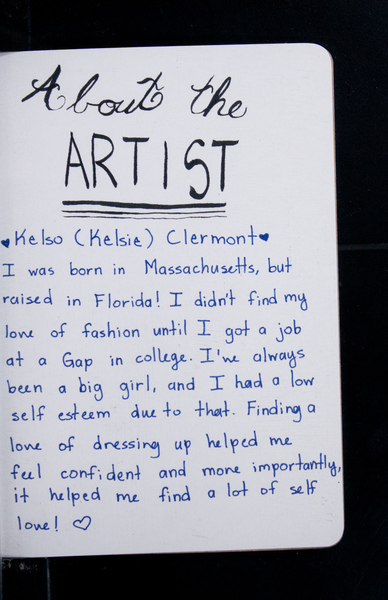 About the
ARTIST
♥Kelso (Kelsie) Clermont♥
I was born in Massachusetts, but
raised in Florida! I didn't find my
love of fashion until I got a job
at a Gap in college. I've always
been a big girl, and I had a low
self esteem due to that. Finding a
love of dressing up helped me
feel confident and more importantly,
it helped me find a lot of self
love! ♡